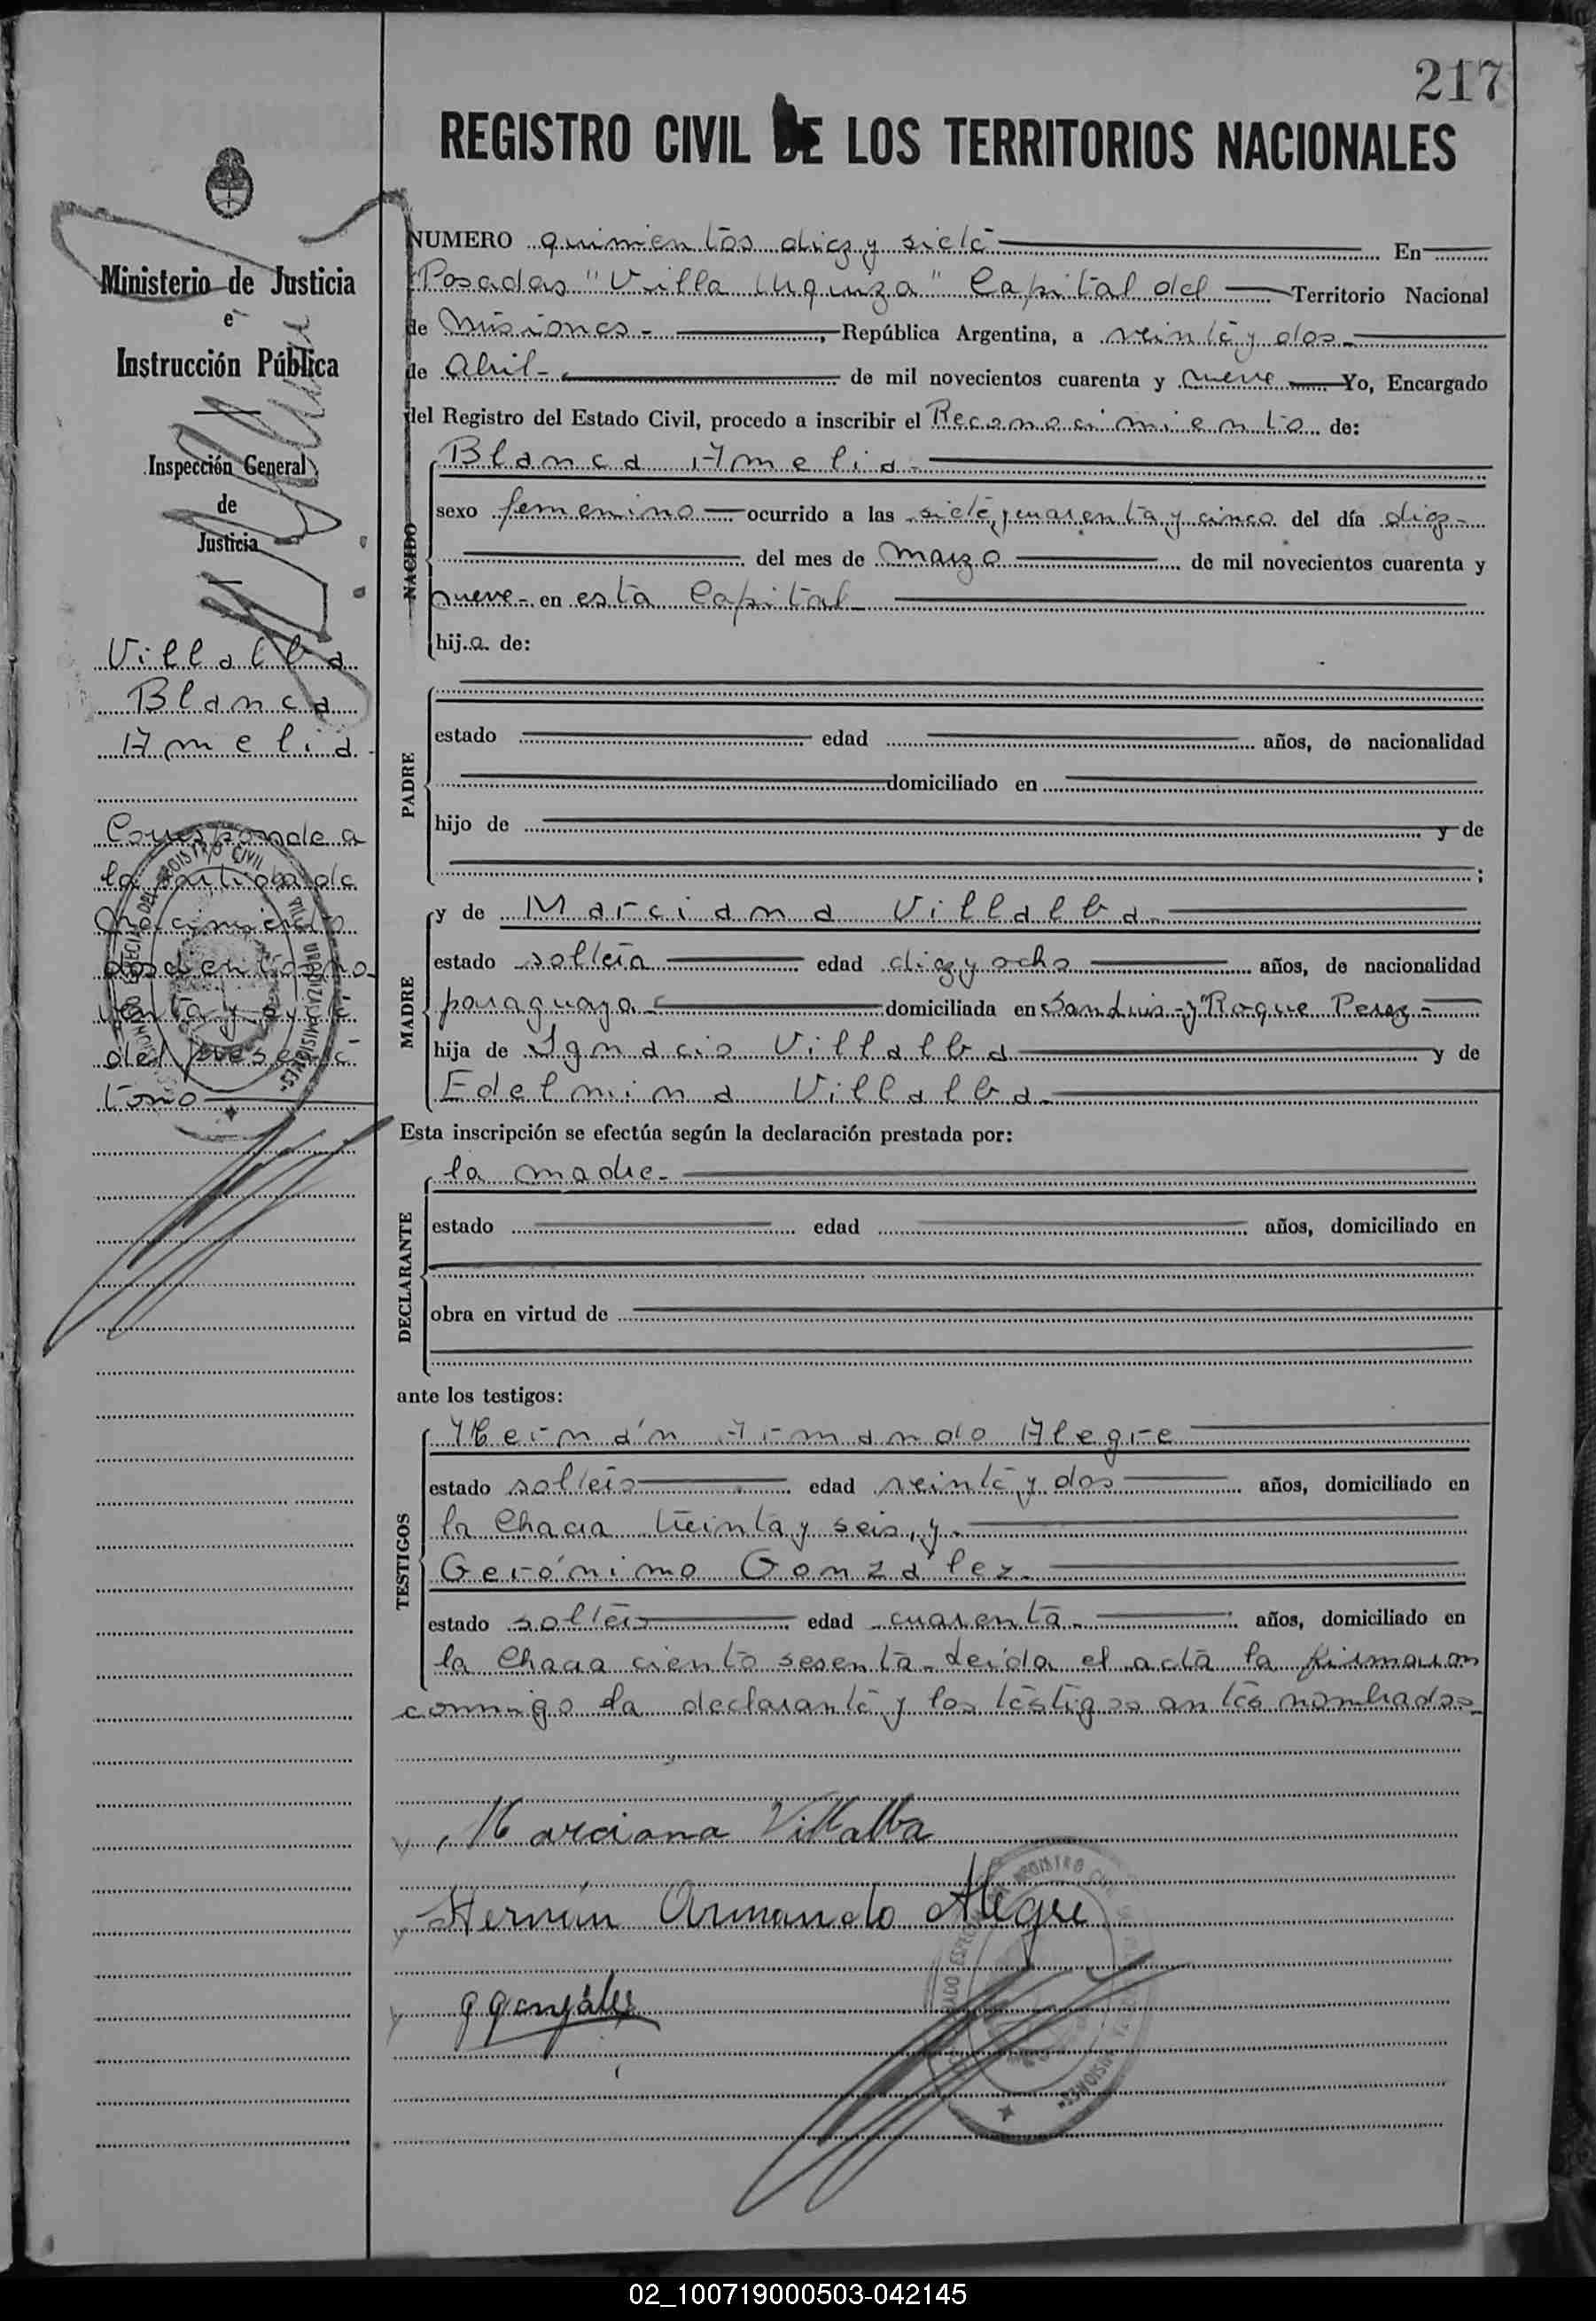 217
REGISTRO CIVIL DE LOS TERRITORIOS NACIONALES
Ministerio de Justicia
e
Instrucción Pública
Inspección General
de
Justicia
Villalba
Blanca
Amelia
Corresponde a
la partida de
Nacimiento
doscientos no
venta y
del presente
tomo
NUMERO quinientos diez y siete En
Posadas "Villa Urquiza" Capital del Territorio Nacional
de Misiones- , República Argentina, a veinte y dos-
de Abril- de mil novecientos cuarenta y nueve Yo, Encargado
del Registro del Estado Civil, procedo a inscribir el Reconocimiento de:
NACIDO
Blanca Amelia-
sexo femenino ocurrido a las siete, y cuarenta y cinco del día diez-
del mes de marzo de mil novecientos cuarenta y
nueve- en esta Capital-
hija de:
PADRE
estado edad años, de nacionalidad
domiciliado en
hijo de y de
;
MADRE
y de Marciana Villalba-
estado soltera edad diez y ocho años, de nacionalidad
paraguaya- domiciliada en San Luis- y Roque Perez-
hija de Ignacio Villalba y de
Edelmina Villalba-
Esta inscripción se efectúa según la declaración prestada por:
DECLARANTE
la madre-
estado edad años, domiciliado en
obra en virtud de
ante los testigos:
TESTIGOS
Hernán Armando Alegre
estado soltero edad veinte y dos años, domiciliado en
la Chacra treinta y seis, y-
Gerónimo González-
estado soltero edad cuarenta- años, domiciliado en
la Chacra ciento sesenta- Leída el acta la firmaron
conmigo la declarante y los testigos antes nombrados-
Marciana Villalba
Hernán Armando Alegre
G González
02_100719000503-042145